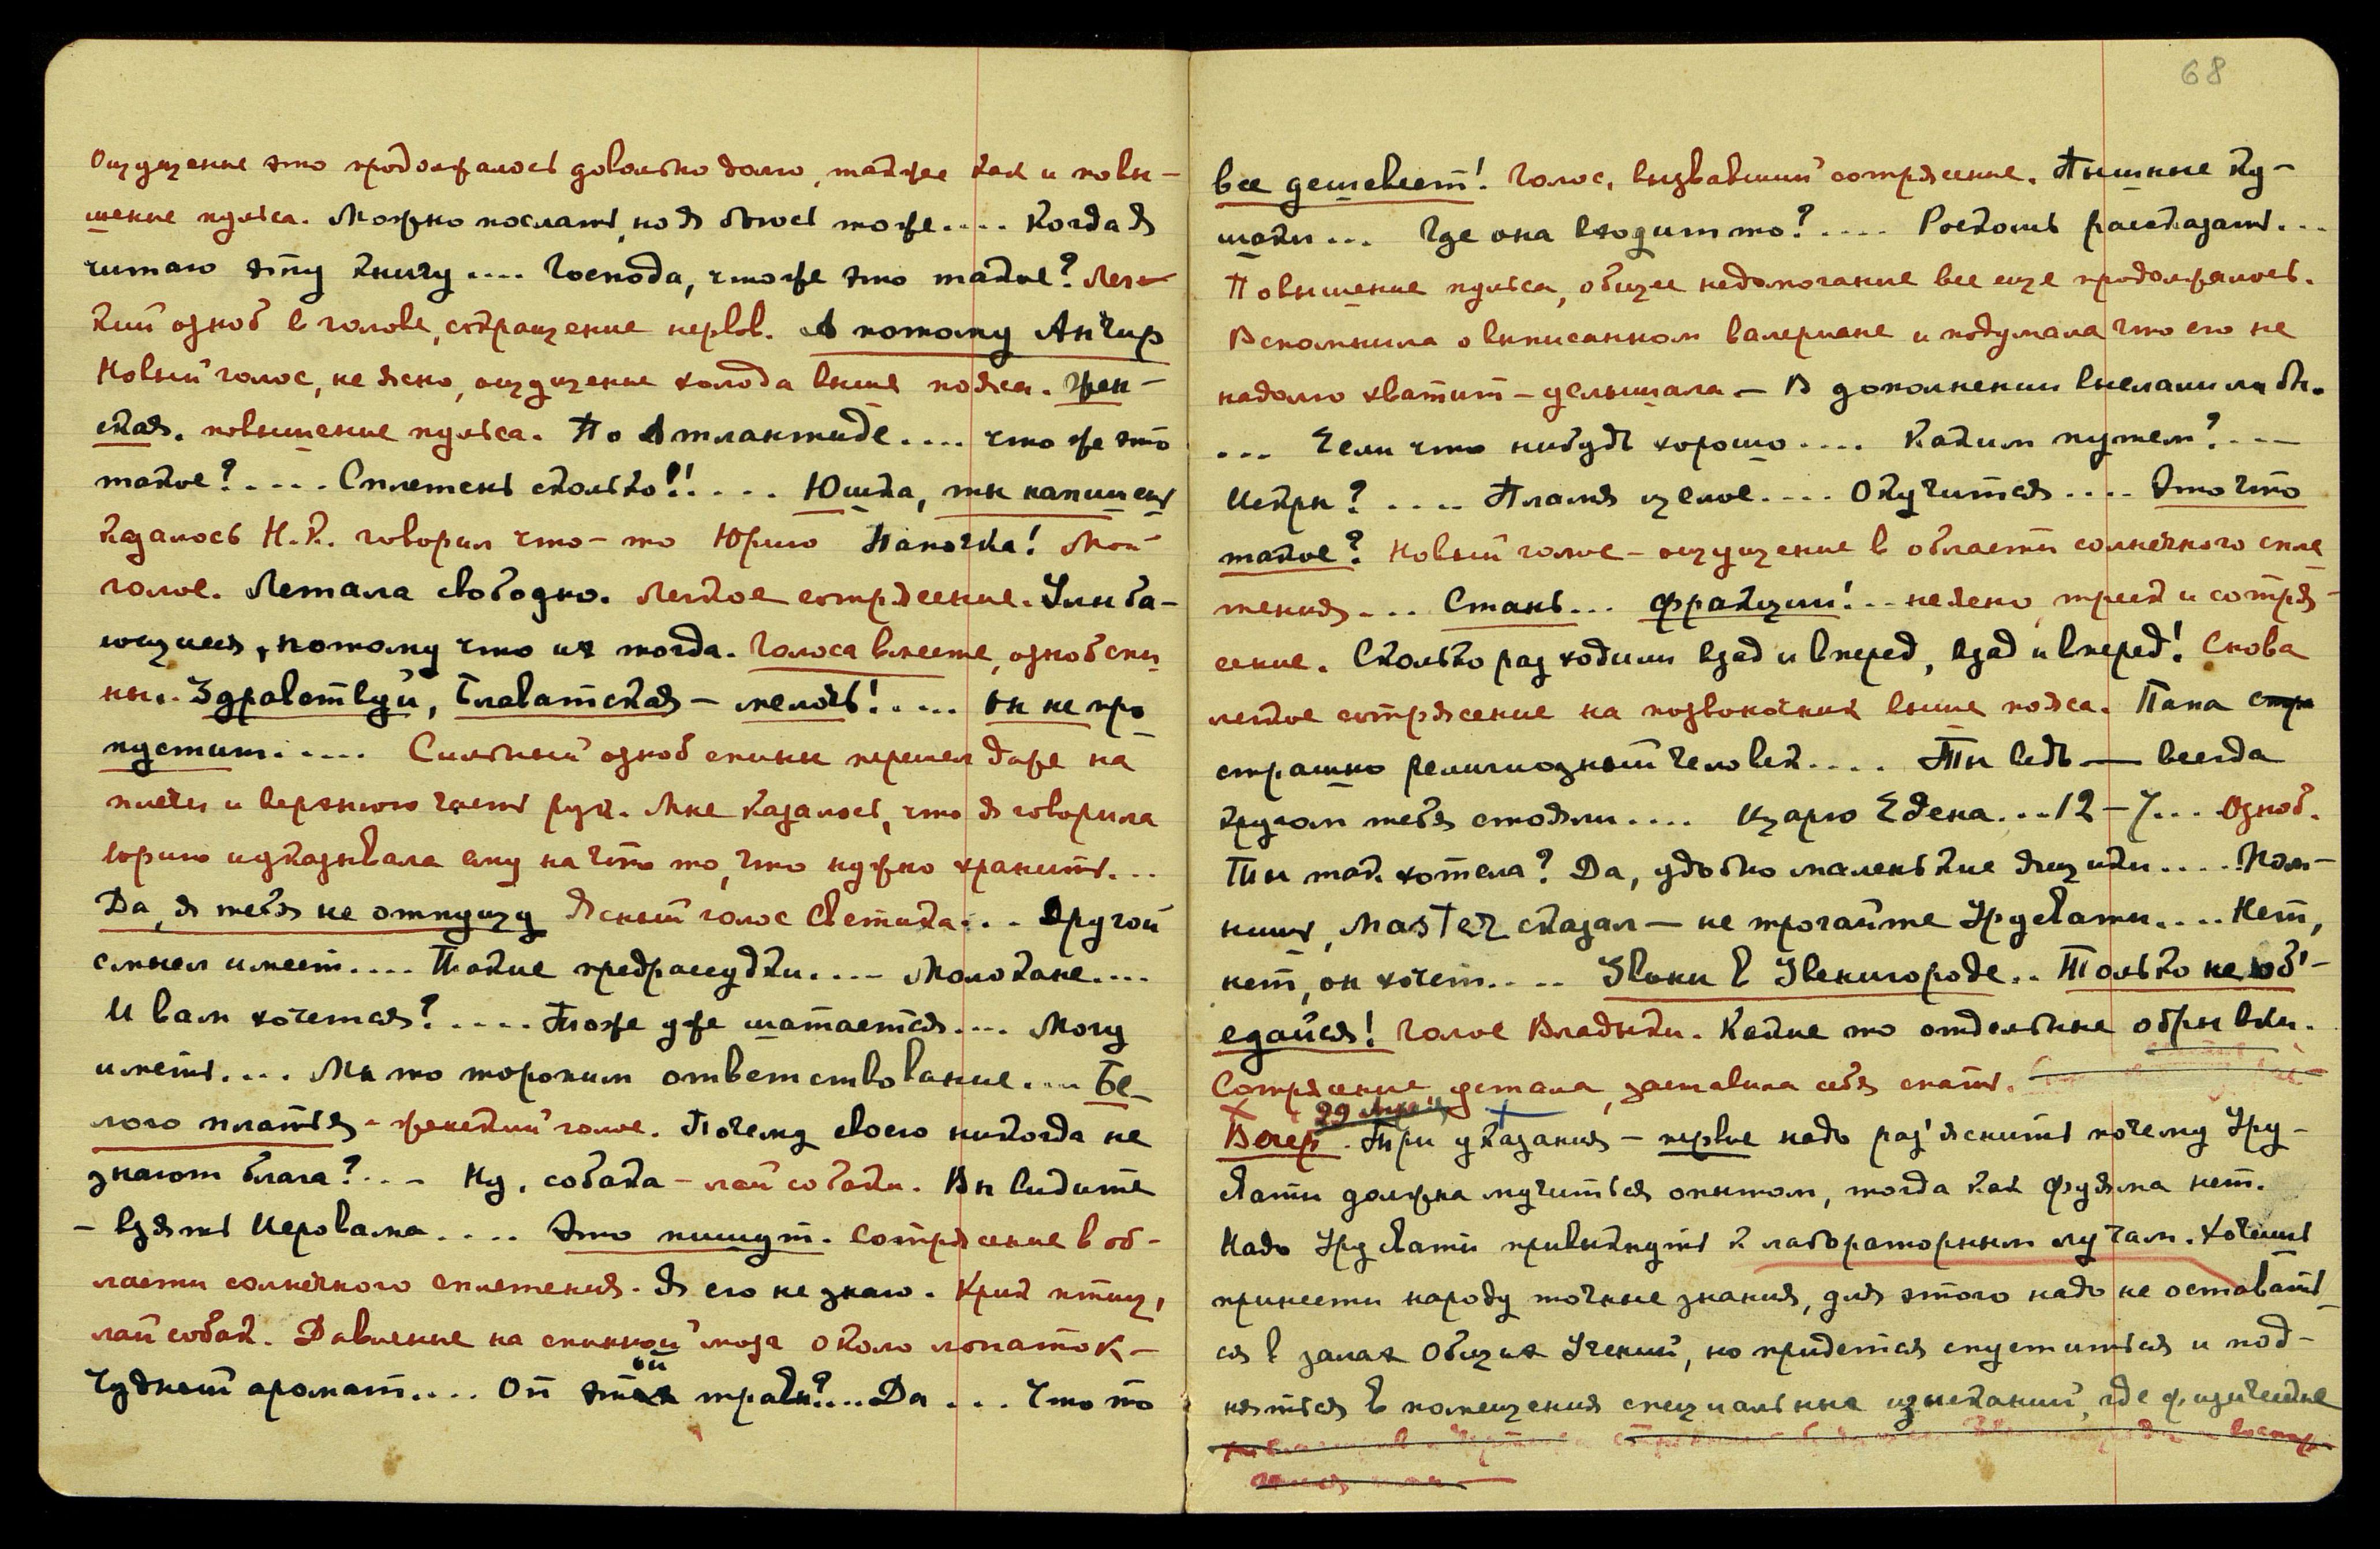 Ощущение это продолжалось довольно долго, также как и повы-
шение пульса. Можно послать, но я боюсь тоже.... Когда я
читаю эту книгу.... Господа, что же это такое? Лег-
кий озноб в голове, сокращение нервов. А потому Ангир
Новый голос, не ясно, ощущение холода выше пояса. Жен-
ская. повышение пульса. По Атлантиде.... что же это
такое?.... Сплетень сколько!!.... Юшка, ты напишешь
казалось Н.К. говорил что-то Юрию Папочка! Мой
голос. Летала свободно. Легкое сотрясение. Улыба-
ющиеся, потому что их тогда. Голоса вместе, озноб спи
ны.. Здравствуй, Блаватская - мелочь!.... он не про
пустит..... Сильный озноб спины перешел даже на
плечи и верхнюю часть рук. Мне казалось, что я говорила
Юрию и указывала ему на что то, что нужно хранить...
Да, я тебя не отпущу Ясный голос Светика... Другой
смысл имеет.... Такие предрассудки.... Молокане....
И вам хочется?.... Тоже уже шатается.... Могу
иметь.... Мы то торопим ответствование.... Бе-
лого платья - женский голос. Почему своего никогда не
знают блага?... Ну, собака - лай собаки. Вы видите
- взять Иеровама.... Это пишут. Сотрясение в об-
ласти солнечного сплетения. Я его не знаю. Крик птиц,
лай собак. Давление на спинной мозг около лопаток -
ой
Чудный аромат.... От этой травы?...Да.... Что то
68
все дешевеет! Голос, вызвавший сотрясение. Пышные ку-
шаки... Где она входит то?.... Роскошь рассказать...
Повышение пульса, общее недомогание все еще продолжалось.
Вспомнила о выписанном валериане и подумала что его не
надолго хватит - услышала - В дополнении выслали ли бы.
... Если что нибудь хорошо.... Каким путем?...
Искры?.... Пламя целое.... Окучится.... Это что
такое? Новый голос - ощущение в области солнечного спле
тения... Стань... Фракции!.. неясно, треск и сотря-
сение. Сколько раз ходили взад и вперед, взад и вперед! Снова
легкое сотрясение на позвоночник выше пояса. Папа стра
страшно религиозный человек.... Ты ведь — всегда
кругом тебя стояли.... Царю Едена...12-7... Озноб.
Ты так хотела? Да, удобно маленькие ящики.... Пом-
нишь, Master сказал — не трогайте Урусвати.... Нет,
нет, он хочет.... Звоны в Звенигороде.. Только не об'-
едайся! Голос Владыки. Какие то отдельные обрывки.
Сотрясение устала, заставила себя спать.
29
Вечер. Три указания - первое надо раз'яснить почему Уру-
свати должна мучиться опытом, тогда как Фуяма нет.
Надо Урусвати привыкнуть к лабораторным лучам. Хочешь
принести народу точные знания, для этого надо не оставать-
ся в залах Общих Учений, но придется спуститься и под-
няться в помещения специальных изысканий, где физические